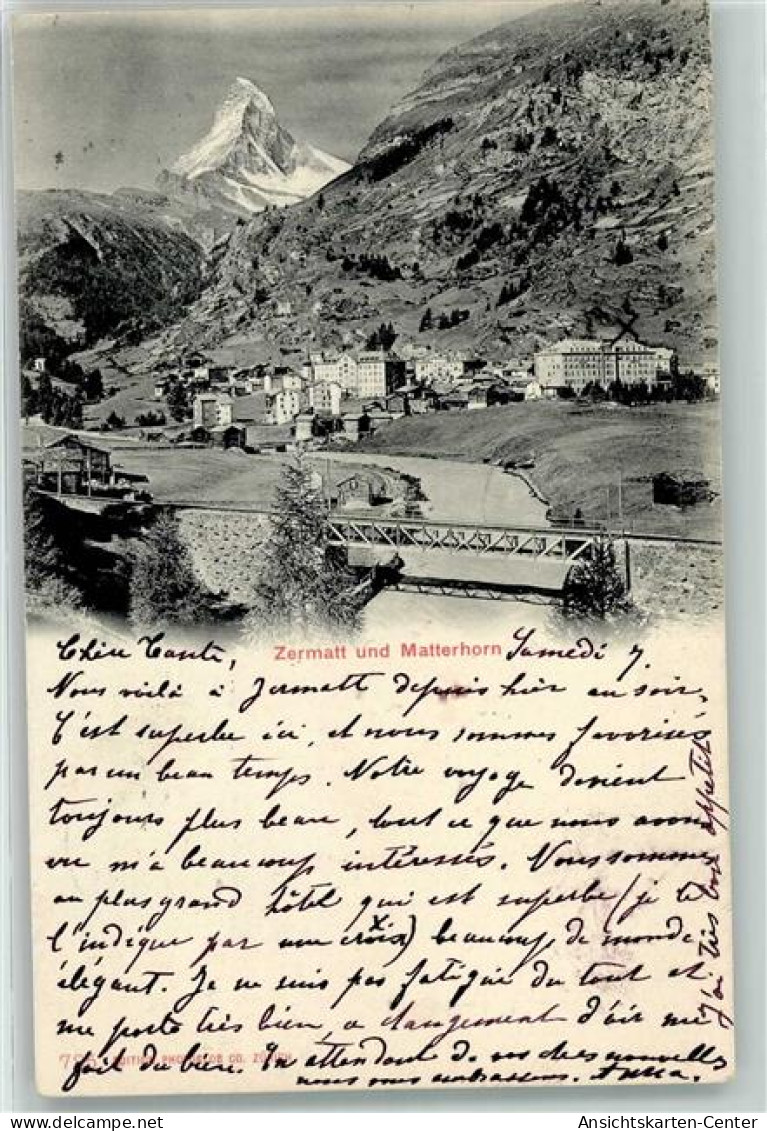 Zermatt und Matterhorn
Chère Tante, Samedi 7.
Nous voilà à Zermatt depuis hier au soir,
C'est superbe ici, et nous sommes favorisés
par un beau temps. Notre voyage devient
toujours plus beau, tout ce que nous avons
vu m'a beaucoup intéressée. Nous sommes
au plus grand hôtel qui est superbe (je te
l'indique par une croix) beaucoup de monde
élégant. Je ne suis pas fatiguée du tout et
me porte très bien, ce changement d'air me
fait du bien. En attendant de vos chères nouvelles
nous vous embrassons. Anna.
J'ai très bon appétit
EDITION PHOTOGLOB CO. ZÜRICH
Ansichtskarten-Center